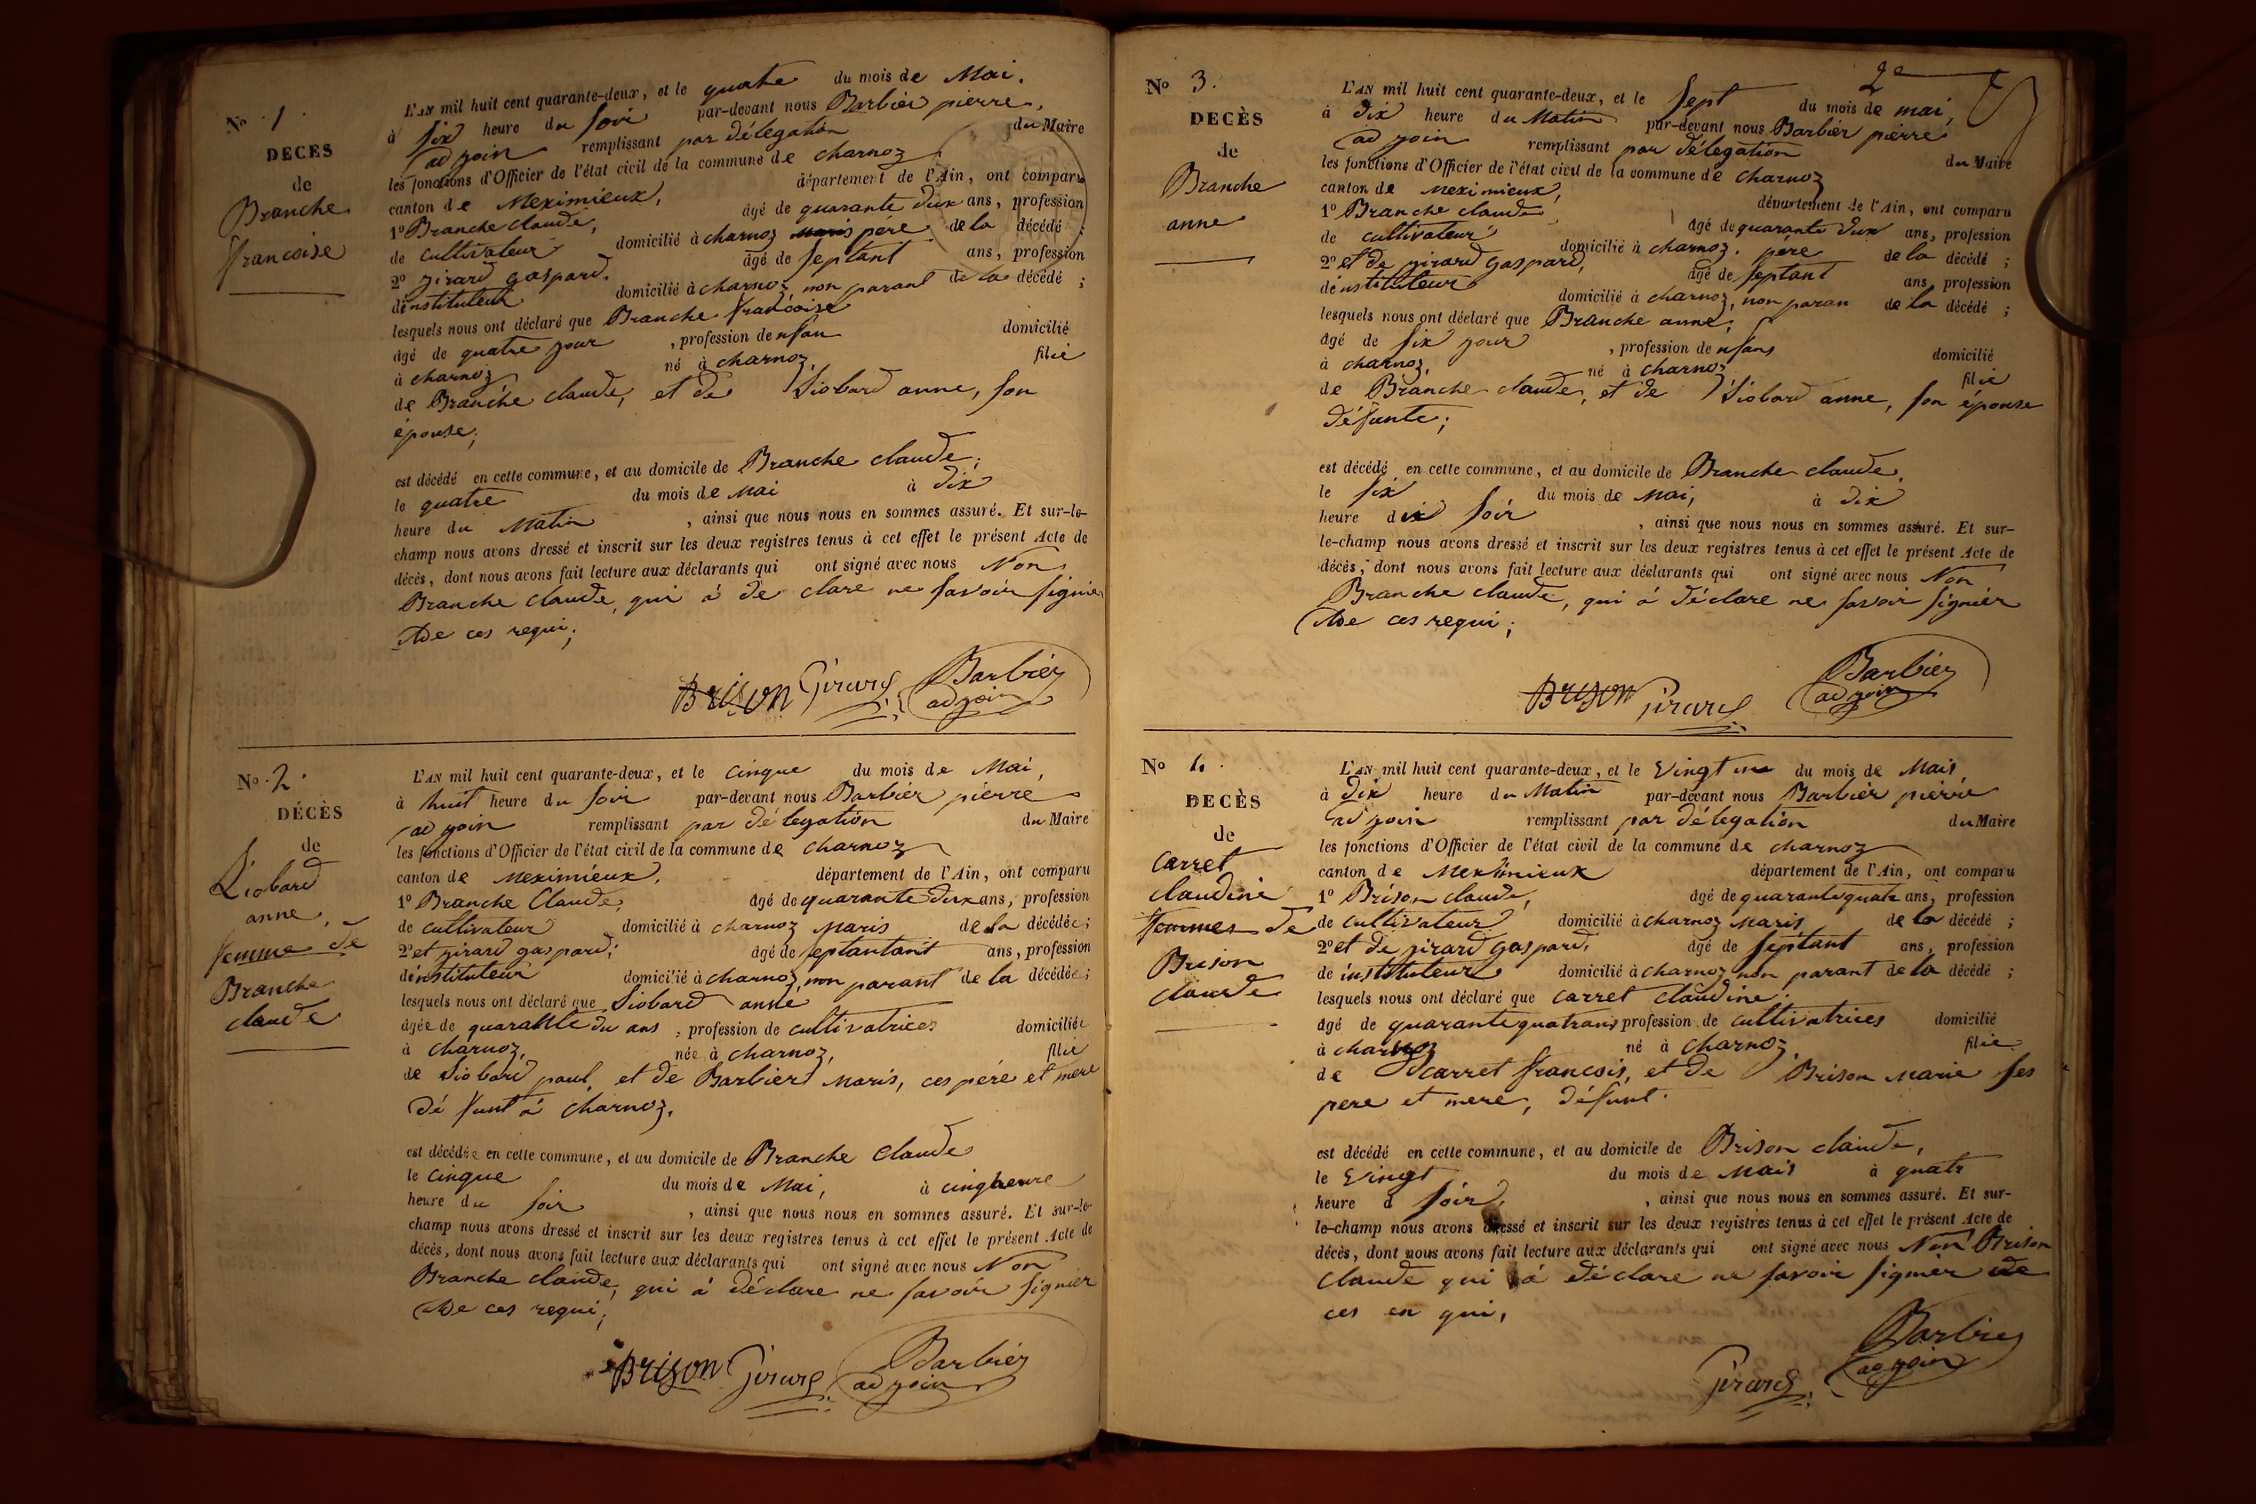 No 1.
DECES
de
Branche
francoise
L'AN mil huit cent quarante-deux, et le quatre du mois de Mai.
à six heure du soir par-devant nous Barbier pierre,
adjoin remplissant par délegation du Maire
les fonctions d'Officier de l'état civil de la commune de charnoz
canton de Meximieux, département de l'Ain, ont comparu
1o Branche claude, âgé de quarante deux ans, profession
de cultivateur domicilié à charnoz père de la décédé ;
2o girard gaspard. âgé de septant ans, profession
dinstituteur domicilié à charnoz non parant de la décédé ;
lesquels nous ont déclaré que Branche francoise
âgé de quatre jour , profession denfan domicilié
à charnoz né à charnoz, filie
de Branche claude, et de Liobard anne, son
épouse;
est décédé en cette commune, et au domicile de Branche claude;
le quatre du mois de Mai à dix
heure du Matin , ainsi que nous nous en sommes assuré. Et sur-le-
champ nous avons dressé et inscrit sur les deux registres tenus à cet effet le présent Acte de
décès, dont nous avons fait lecture aux déclarants qui ont signé avec nous Non
Branche claude, qui á de clare ne savoir signier
de ces requi;
Brison Girard Barbier
adjoin
No 2.
DÉCÈS
de
Liobard
anne,
femme de
Branche
claude
L'AN mil huit cent quarante-deux, et le cinque du mois de Mai,
à huit heure du soir par-devant nous Barbier pierre
adjoin remplissant par délegation du Maire
les fonctions d'Officier de l'état civil de la commune de charnoz
canton de Meximieux, département de l'Ain, ont comparu
1o Branche Claude, âgé de quarante deux ans, profession
de cultivateur domicilié à charnoz Maris de la décédée;
2o et girard gaspard; âgé de septantant ans, profession
dinstituteur domicilié à charnoz, non parant de la décédée;
lesquels nous ont déclaré que Liobard anne
âgée de quarante du ans , profession de cultivatrices domiciliée
à charnoz, née à charnoz, filie
de Liobard paul, et de Barbier Maris, ces père et mere
dé funt á charnoz.
est décédée en cette commune, et au domicile de Branche Claude
le cinque du mois de Mai, à cinqheure
heure du soir , ainsi que nous nous en sommes assuré. Et sur-le-
champ nous avons dressé et inscrit sur les deux registres tenus à cet effet le présent Acte de
décès, dont nous avons fait lecture aux déclarants qui ont signé avec nous Non
Branche claude, qui á déclare ne savoir signier
de ces requi;
Brison Girard Barbier
adjoin
2e
No 3.
DECÈS
de
Branche
anne
L'AN mil huit cent quarante-deux, et le sept du mois de mai,
à dix heure du Matin par-devant nous Barbier pierre
adjoin remplissant par délegation du Maire
les fonctions d'Officier de l'état civil de la commune de charnoz
canton de Meximieux, département de l'Ain, ont comparu
1o Branche claude âgé de quarante deux ans, profession
de cultivateur domicilié à charnoz. père de la décédé ;
2o et de girard gaspard, âgé de septant ans, profession
de instituteur domicilié à charnoz, non paran de la décédé ;
lesquels nous ont déclaré que Branche anne,
âgé de six jour , profession de nfans domicilié
à charnoz, né à charnoz filie
de Branche claude, et de Liobard anne, son épouse
défunte;
est décédé en cette commune, et au domicile de Branche claude.
le six du mois de Mai, à dix
heure du soir , ainsi que nous nous en sommes assuré. Et sur-
le-champ nous avons dressé et inscrit sur les deux registres tenus à cet effet le présent Acte de
décès, dont nous avons fait lecture aux déclarants qui ont signé avec nous Non
Branche claude, qui á déclare ne savoir signier
de ces requi;
Brison Girard Barbier
adjoin
No 4.
DECÈS
de
Carret
claudine
femmes de
Brison
claude
L'AN mil huit cent quarante-deux, et le Vingt une du mois de Mais
à dix heure du Matin par-devant nous Barbier pierre
adjoin remplissant par délegation du Maire
les fonctions d'Officier de l'état civil de la commune de charnoz
canton de Meximieux département de l'Ain, ont comparu
1o Brison claude, âgé de quarante quatr ans, profession
de cultivateur domicilié à charnoz Maris de la décédé ;
2o et de girard gaspard. âgé de septant ans, profession
de instituteur domicilié à charnoz non parant de la décédé ;
lesquels nous ont déclaré que carret claudine.
âgé de quarante quatrans profession de cultivatrices domicilié
à charnoz né à charnoz. filie
de carret francois, et de Brison Marie ses
pere et mere, défunt.
est décédé en cette commune, et au domicile de Brison claude,
le Vingt du mois de Mais à quatr
heure d soir , ainsi que nous nous en sommes assuré. Et sur-
le-champ nous avons dressé et inscrit sur les deux registres tenus à cet effet le présent Acte de
décès, dont nous avons fait lecture aux déclarants qui ont signé avec nous Non Brison
claude qui á déclare ne savoir signier de
ces en qui,
Girard Barbier
adjoin